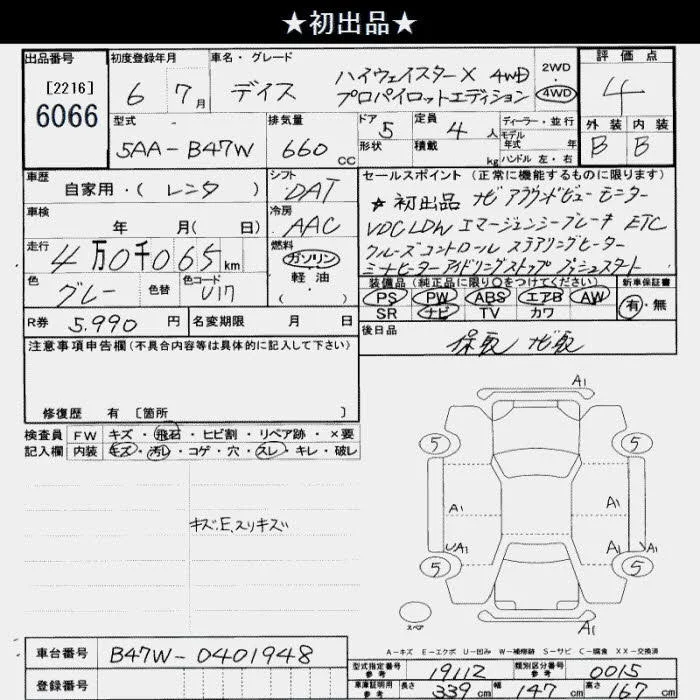 ★初出品★
出品番号 初度登録年月 車名・グレード 2WD 評価点
[2216] ハイウェイスターX 4WD
6066 6 7月 デイズ プロパイロットエディション 4WD 4
型式 排気量 ドア 定員 ディーラー・並行 外装 内装
5AA-B47W 660 CC 5 4人 モデル年式 年 B B
形状 積載 kg ハンドル 左・右
車歴 シフト セールスポイント(正常に機能するものに限ります)
自家用・(レンタ) DAT ★初出品 ナビ アラウンドビューモニター
車検 冷房 VDC LDW エマージェンシーブレーキ ETC
年 月(日) AAC クルーズコントロール ステアリングヒーター
走行 燃料 シートヒーター アイドリングストップ プッシュスタート
4万0千065km ガソリン 装備品(純正品に限り○をつけてください) 新車保証書
色 色替 色コード 軽油 PS PW ABS エアB AW 有・無
グレー U17 (・) SR ナビ TV カワ
R券 5,990円 名変期限 月 日 後日品
注意事項申告欄(不具合内容等は具体的に記入して下さい) 保取 ナビ取
修復歴 有 [箇所 ]
検査員 FW キズ・飛石・ヒビ割・リペア跡・×要
記入欄 内装 キズ・汚レ・コゲ・穴・スレ・キレ・破レ
キズ、E、スリキズ
A1
5 5
A1 A1
UA1 A1
5 5
スペア A1
A-キズ E-エクボ U-凹み W-補修跡 S-サビ C-腐食 XX-交換済
車台番号 B47W-0401948
型式指定番号 参考 19112 類別区分番号 参考 0015
登録番号 車庫証明用 参考 長さ 339cm 幅 147cm 高さ 167cm